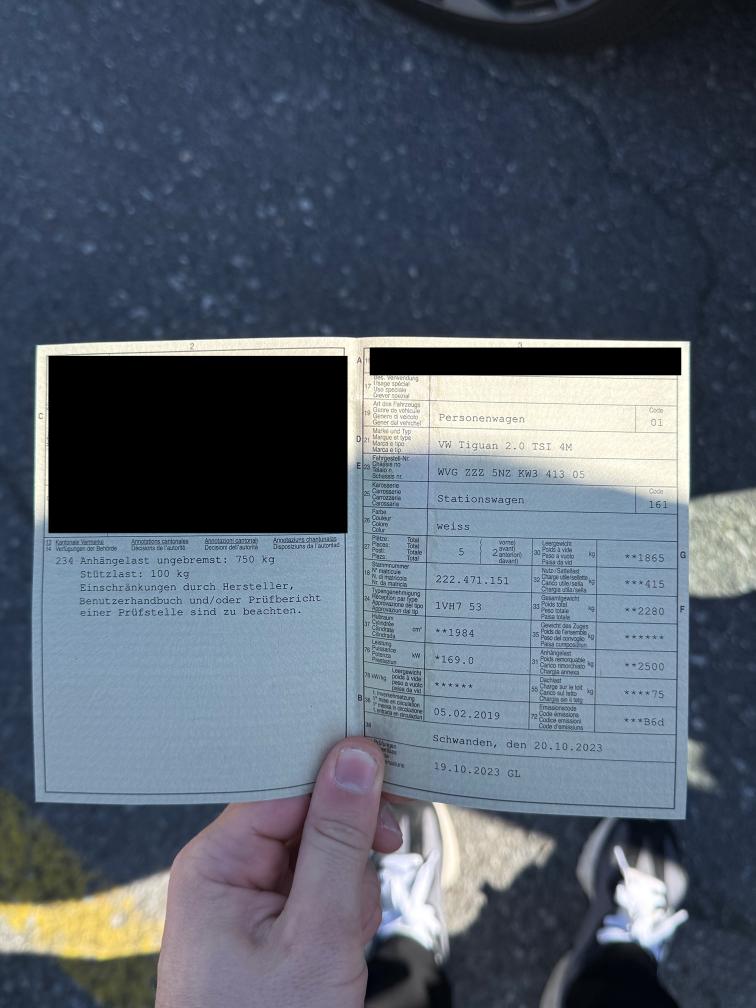 2
C
13 Kantonale Vermerke Annotations cantonales Annotazioni cantonali Annotaziuns chantunalas
14 Verfügungen der Behörde Décisions de l'autorité Decisioni dell'autorità Disposiziuns da l'autoritad
234 Anhängelast ungebremst: 750 kg
Stützlast: 100 kg
Einschränkungen durch Hersteller,
Benutzerhandbuch und/oder Prüfbericht
einer Prüfstelle sind zu beachten.
3
A
17 Bes. Verwendung
Usage spécial
Uso speciale
Diever spezial
19 Art des Fahrzeugs
Genre de véhicule
Genere di veicolo
Gener dal vehichel
Personenwagen
Code
01
D 21 Marke und Typ
Marque et type
Marca e tipo
Marca e tip
VW Tiguan 2.0 TSI 4M
E 23 Fahrgestell-Nr.
Châssis no
Telaio n.
Schassis nr.
WVG ZZZ 5NZ KW3 413 05
25 Karosserie
Carrosserie
Carrozzeria
Carossaria
Stationswagen
Code
161
26 Farbe
Couleur
Colore
Colur
weiss
27 Plätze: Total
Places: Total
Posti: Totale
Plazs: Total
5 ( 2 vorne)
avant)
anteriori)
davant)
30 Leergewicht
Poids à vide
Peso a vuoto
Paisa da vid
kg
**1865
G
18 Stammnummer
N° matricule
N. di matricola
Nr. da matricla
222.471.151
32 Nutz-/Sattellast
Charge utile/sellette
Carico utile/sella
Chargia utila/sella
kg
***415
24 Typengenehmigung
Réception par type
Approvazione del tipo
Approvaziun dal tip
1VH7 53
33 Gesamtgewicht
Poids total
Peso totale
Paisa totala
kg
**2280
F
37 Hubraum
Cylindrée
Cilindrata
Cilindrada
cm³
**1984
35 Gewicht des Zuges
Poids de l'ensemble
Peso del convoglio
Paisa cumposiziun
kg
******
76 Leistung
Puissance
Potenza
Prestaziun
kW
*169.0
31 Anhängelast
Poids remorquable
Carico rimorchiato
Chargia annexa
kg
**2500
78 kW/kg Leergewicht
poids à vide
peso a vuoto
paisa da vid
******
55 Dachlast
Charge sur le toit
Carico sul tetto
Chargia sin il tetg
kg
****75
B 36 1. Inverkehrsetzung
1re mise en circulation
1a messa in circolazione
1. entrada en circulaziun
05.02.2019
72 Emissionscode
Code émissions
Codice emissioni
Code d'emissiuns
***B6d
38
Schwanden, den 20.10.2023
19.10.2023 GL